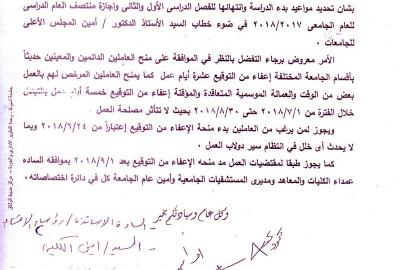 بشأن تحديد مواعيد بدء الدراسة وانتهائها للفصل الدراسى الأول والثانى واجازة منتصف العام الدراسى
للعام الجامعى ٢٠١٨/٢٠١٧ فى ضوء خطاب السيد الأستاذ الدكتور / أمين المجلس الأعلى
للجامعات .
الأمر معروض برجاء التفضل بالنظر فى الموافقة على منح العاملين الدائمين والمعينين حديثاً
بأقسام الجامعة المختلفة إعفاء من التوقيع عشرة أيام عمل كما يمنح العاملين المرخص لهم بالعمل
بعض من الوقت والعمالة الموسمية المتعاقدة والمؤقتة إعفاء من التوقيع خمسة أيام عمل
خلال الفترة من ٢٠١٨/٧/١ حتى ٢٠١٨/٨/٣٠ بحيث لا تتأثر مصلحة العمل
ويجوز لمن يرغب من العاملين بدء منحة الإعفاء من التوقيع إعتباراً من ٢٠١٨/٦/٢٤ وبما
لا يحدث أى خلل فى انتظام سير دولاب العمل .
كما يجوز طبقا لمقتضيات العمل مد منحه الإعفاء من التوقيع بعد ٢٠١٨/٩/١ بموافقه الساده
عمداء الكليات والمعاهد ومديرى المستشفيات الجامعية وأمين عام الجامعة كل فى دائرة اختصاصاته .
وكل عام وسيادتكم بخير
السادة الاساتذة / رؤساء الاقسام
السيد / امين الكلية